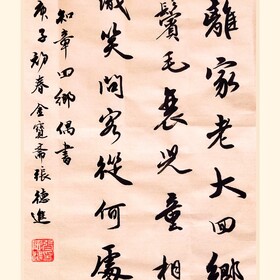 離家老大回鄉
鬢毛衰兒童相
識笑問客從何處
知章回鄉偶書
庚子初春金齋張德進